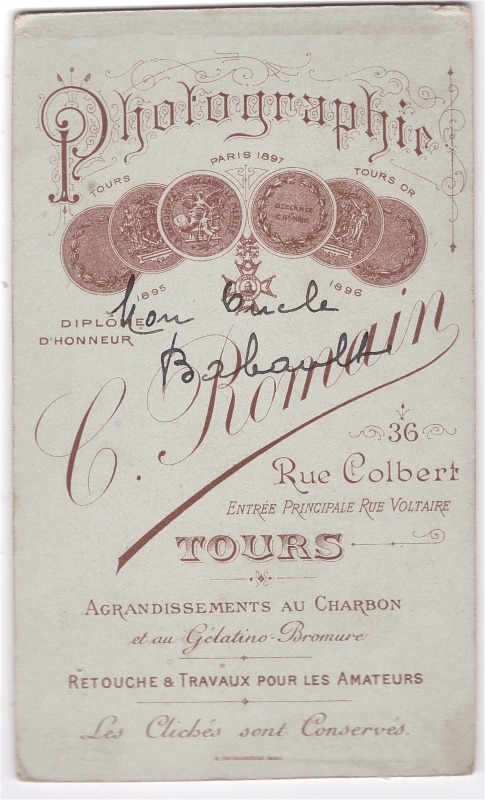 Photographie
PARIS 1897
TOURS
TOURS OR
1895
1896
DIPLÔME
D'HONNEUR
Mon Oncle
Babault
C. Romain
36
Rue Colbert
ENTRÉE PRINCIPALE RUE VOLTAIRE
TOURS
AGRANDISSEMENTS AU CHARBON
et au Gélatino-Bromure
RETOUCHE & TRAVAUX POUR LES AMATEURS
Les Clichés sont Conservés.